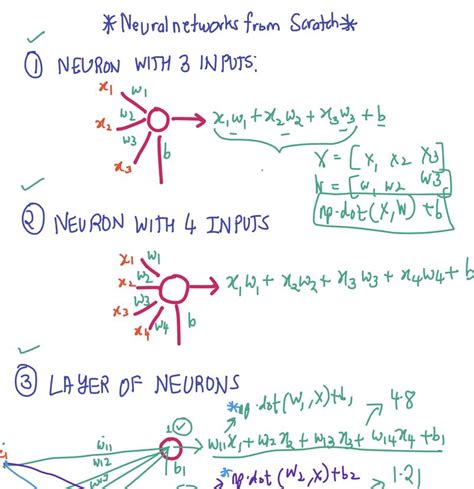 *Neural networks from Scratch*
① NEURON WITH 3 INPUTS:
x1 w1
x2 w2
w3
x3 b
x1w1+x2w2+x3w3+b
X = [x1 x2 x3]
W = [w1 w2 w3]
np.dot(X,W)+b
② NEURON WITH 4 INPUTS
x1 w1
x2 w2
x3 w3
x4 w4 b
x1w1+x2w2+x3w3+x4w4+b
③ LAYER OF NEURONS
*np.dot(W1,X)+b1 → 48
w11 1
w11x1+w12x2+w13x3+w14x4+b1
w12
w13 b1
*np.dot(W2,X)+b2 1.21